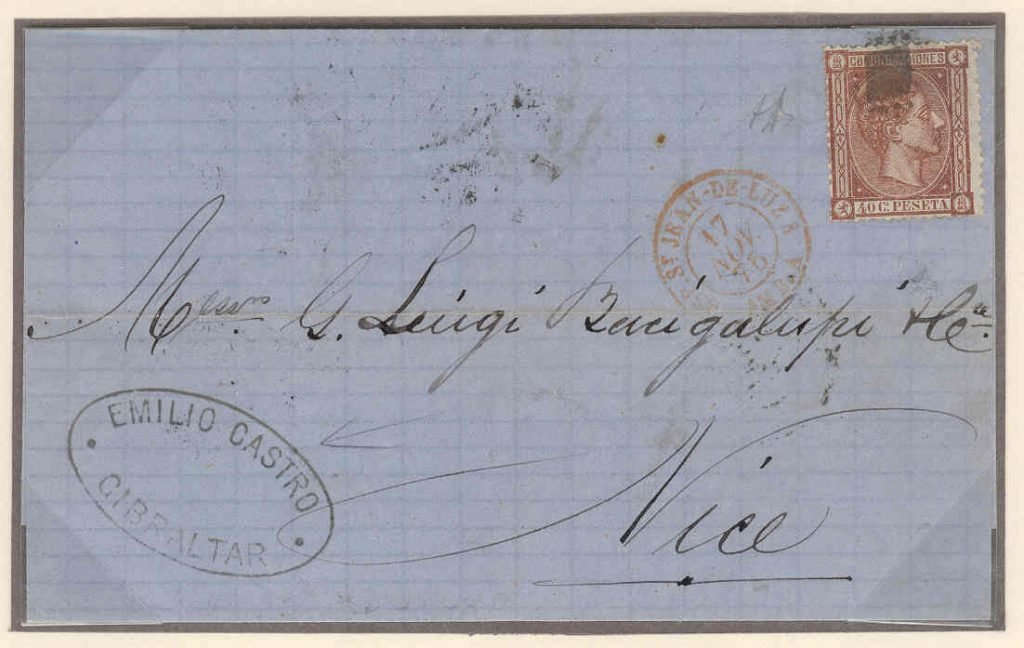 COMUNICACIONES
40 Cs. PESETA
ST JEAN-DE-LUZ
17
NOV
75
Messrs G. Luigi Bacigalupi & Ca.
EMILIO CASTRO
GIBRALTAR
Nice